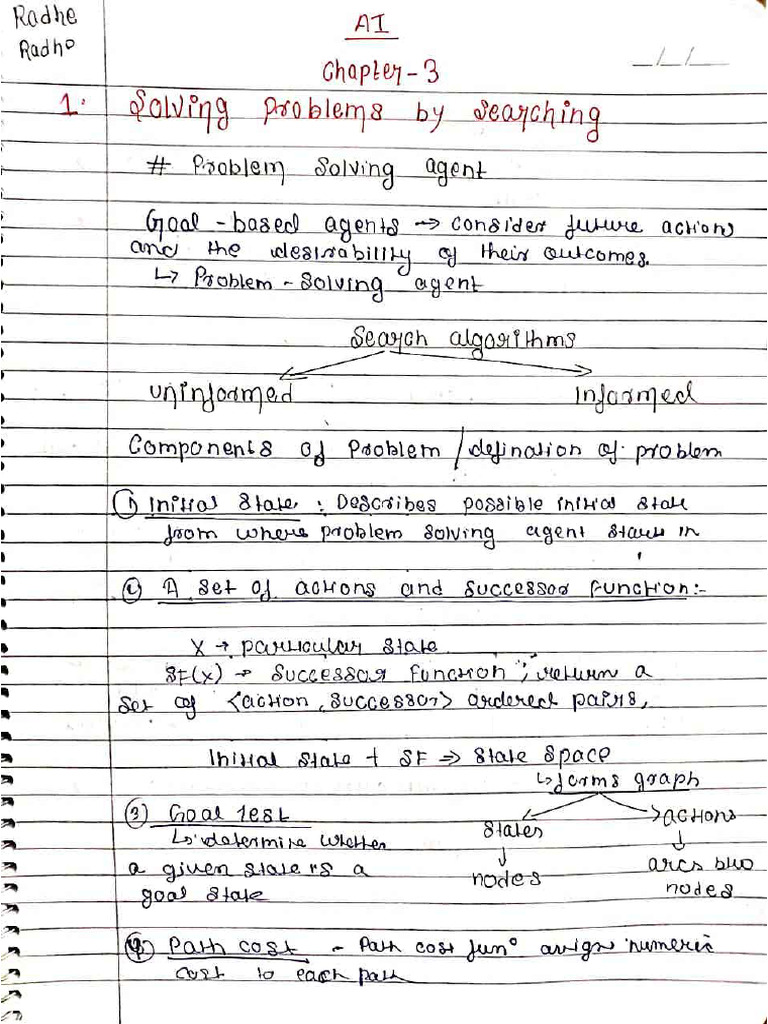 Radhe
Radhe
AI
Chapter-3
_/_/__
1. Solving Problems by Searching
# Problem Solving agent
Goal-based agents → consider future actions
and the desirability of their outcomes.
↳ Problem-Solving agent
Search algorithms
uninformed
Informed
Components of Problem / defination of problem
① Initial State : Describes possible initial state
from where problem solving agent starts in
② A set of actions and successor function:-
X → particular state
SF(X) → Successor function ; return a
set of <action, successor> ordered pairs,
Initial state + SF ⇒ State Space
↳ forms graph
③ Goal test
states
actions
↳ determine whether
a given state is a
goal state
nodes
arcs btw
nodes
④ Path cost - Path cost funⁿ assign numeric
cost to each path